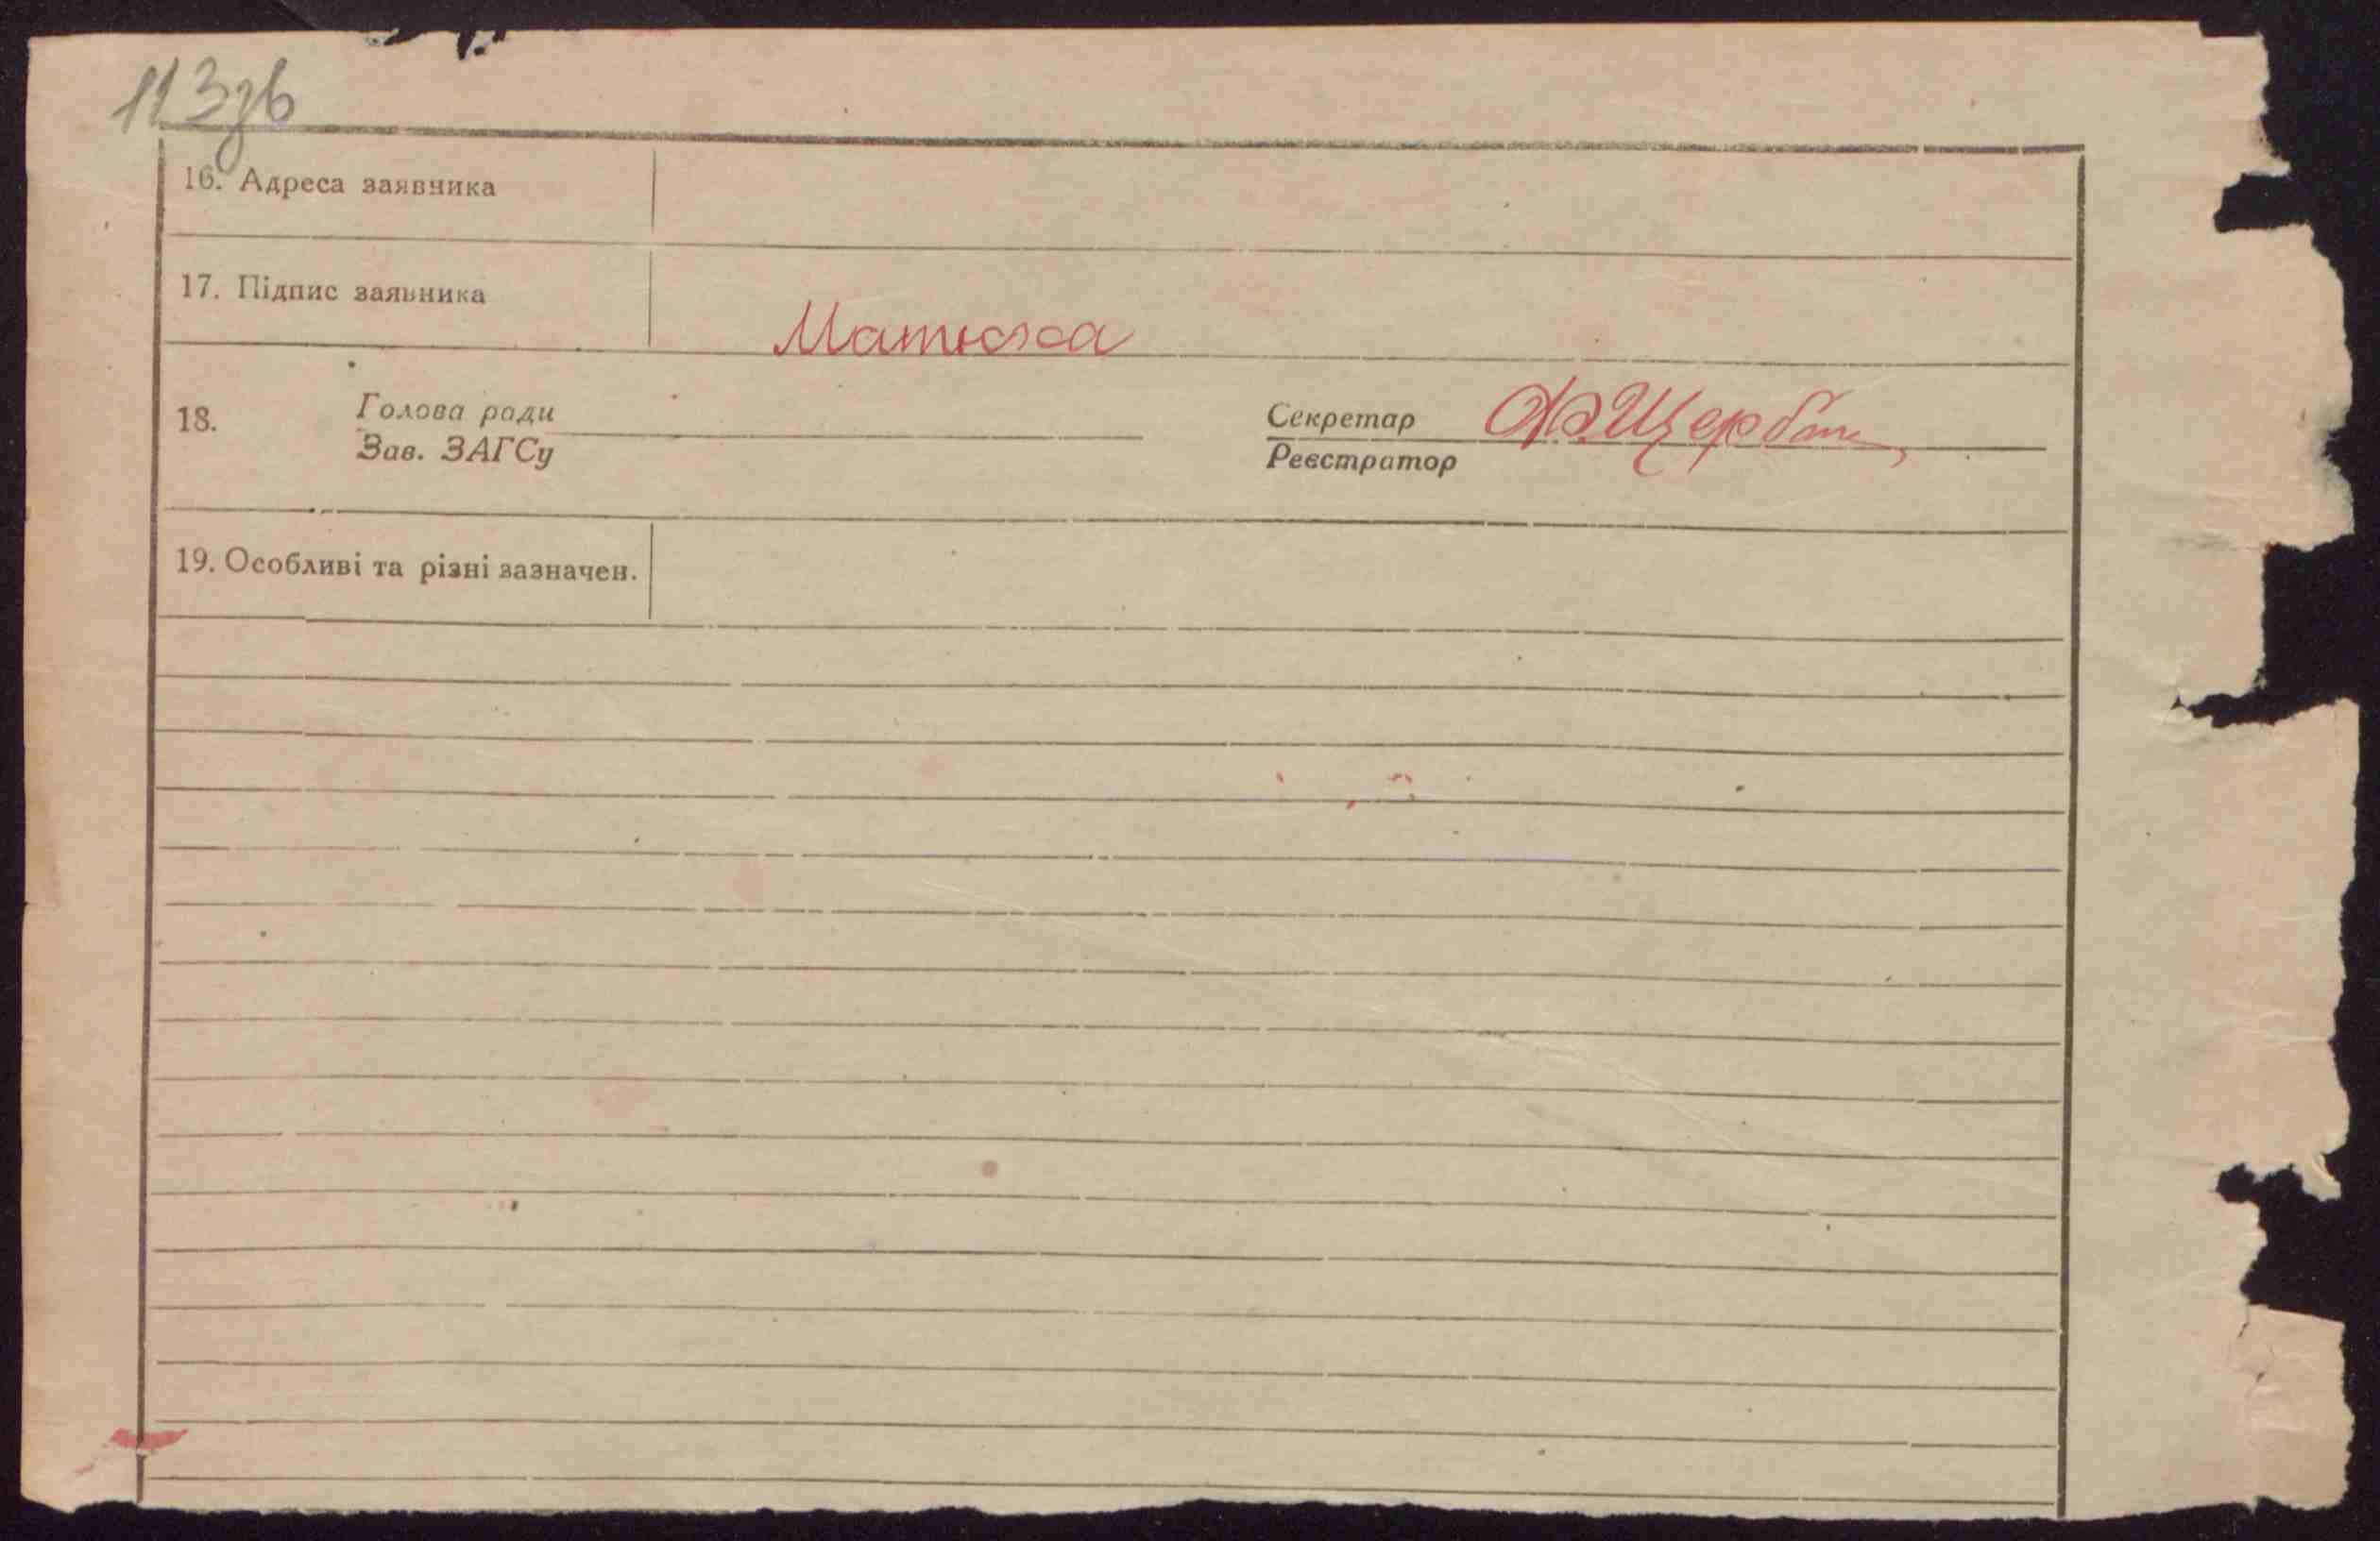 113зв
16. Адреса заявника
17. Підпис заявника
Матюха
18. Голова ради
Зав. ЗАГСу
Секретар
Реєстратор
19. Особливі та різні зазначен.